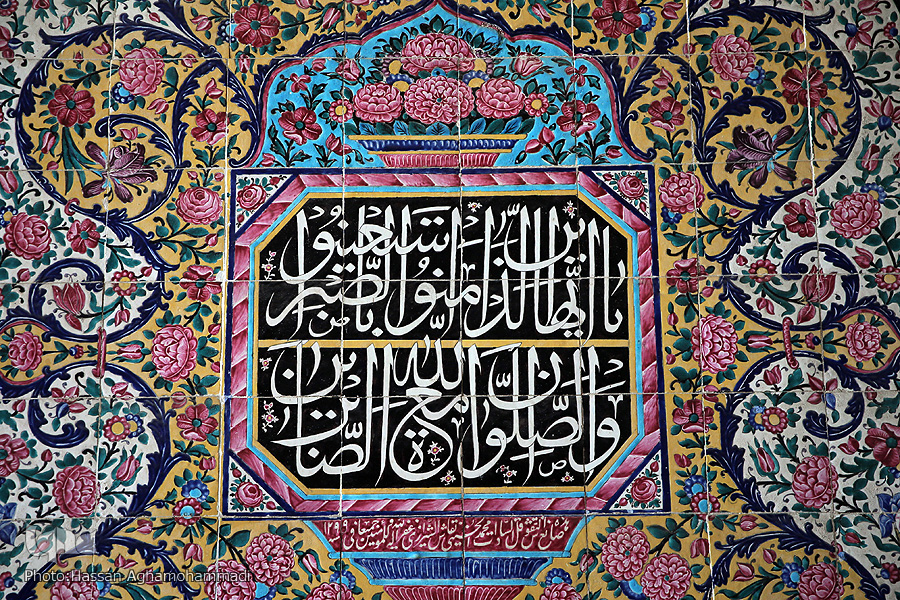 یا ایها الذین امنوا استعینوا بالصبر
والصلوة ان الله مع الصابرین
۱۲۹۹
Photo:Hassan Aghamohammadi